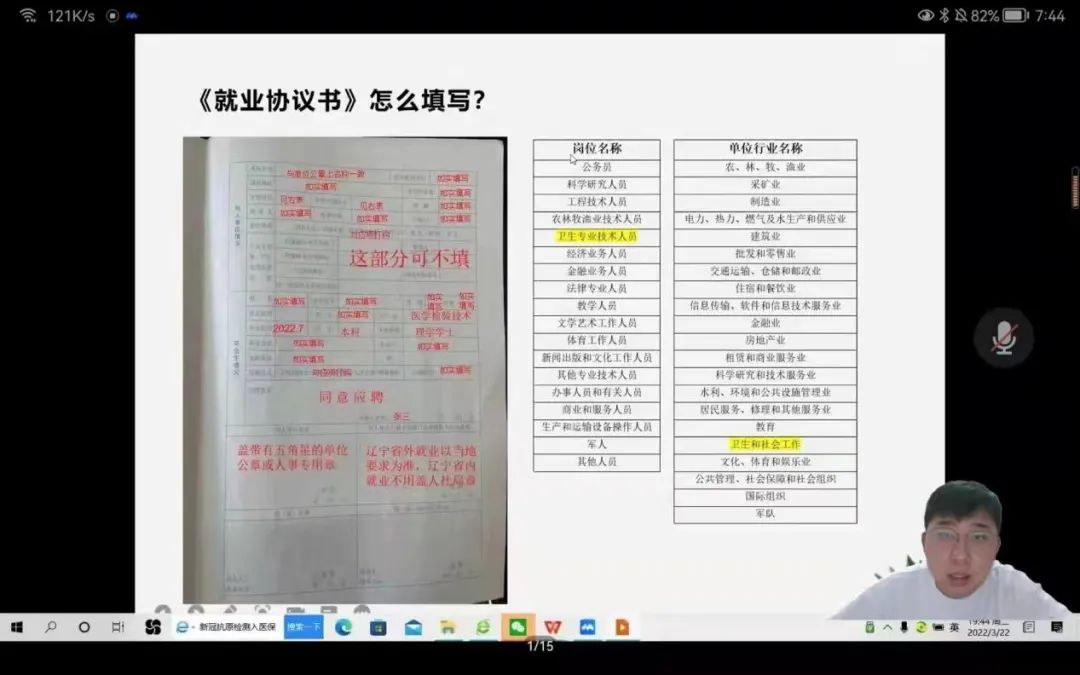 121K/s
82% 7:44
《就业协议书》怎么填写?
与单位公章上名称一致
如实填写
如实填写
如实填写
见右表
见右表
如实填写
如实填写
如实填写
如实填写
对应项打钩
这部分可不填
如实填写
如实填写
如实填写
如实填写
如实填写
医学检验技术
2022.7
本科
理学学士
如实填写
如实填写
如实填写
对应项打钩
如实填写
同意应聘
张三
盖带有五角星的单位
公章或人事专用章
辽宁省外就业以当地
要求为准,辽宁省内
就业不用盖人社局章
岗位名称
公务员
科学研究人员
工程技术人员
农林牧渔业技术人员
卫生专业技术人员
经济业务人员
金融业务人员
法律专业人员
教学人员
文学艺术工作人员
体育工作人员
新闻出版和文化工作人员
其他专业技术人员
办事人员和有关人员
商业和服务人员
生产和运输设备操作人员
军人
其他人员
单位行业名称
农、林、牧、渔业
采矿业
制造业
电力、热力、燃气及水生产和供应业
建筑业
批发和零售业
交通运输、仓储和邮政业
住宿和餐饮业
信息传输、软件和信息技术服务业
金融业
房地产业
租赁和商业服务业
科学研究和技术服务业
水利、环境和公共设施管理业
居民服务、修理和其他服务业
教育
卫生和社会工作
文化、体育和娱乐业
公共管理、社会保障和社会组织
国际组织
军队
新冠抗原检测入医保
搜索一下
英
19:44 周二
2022/3/22
1/15